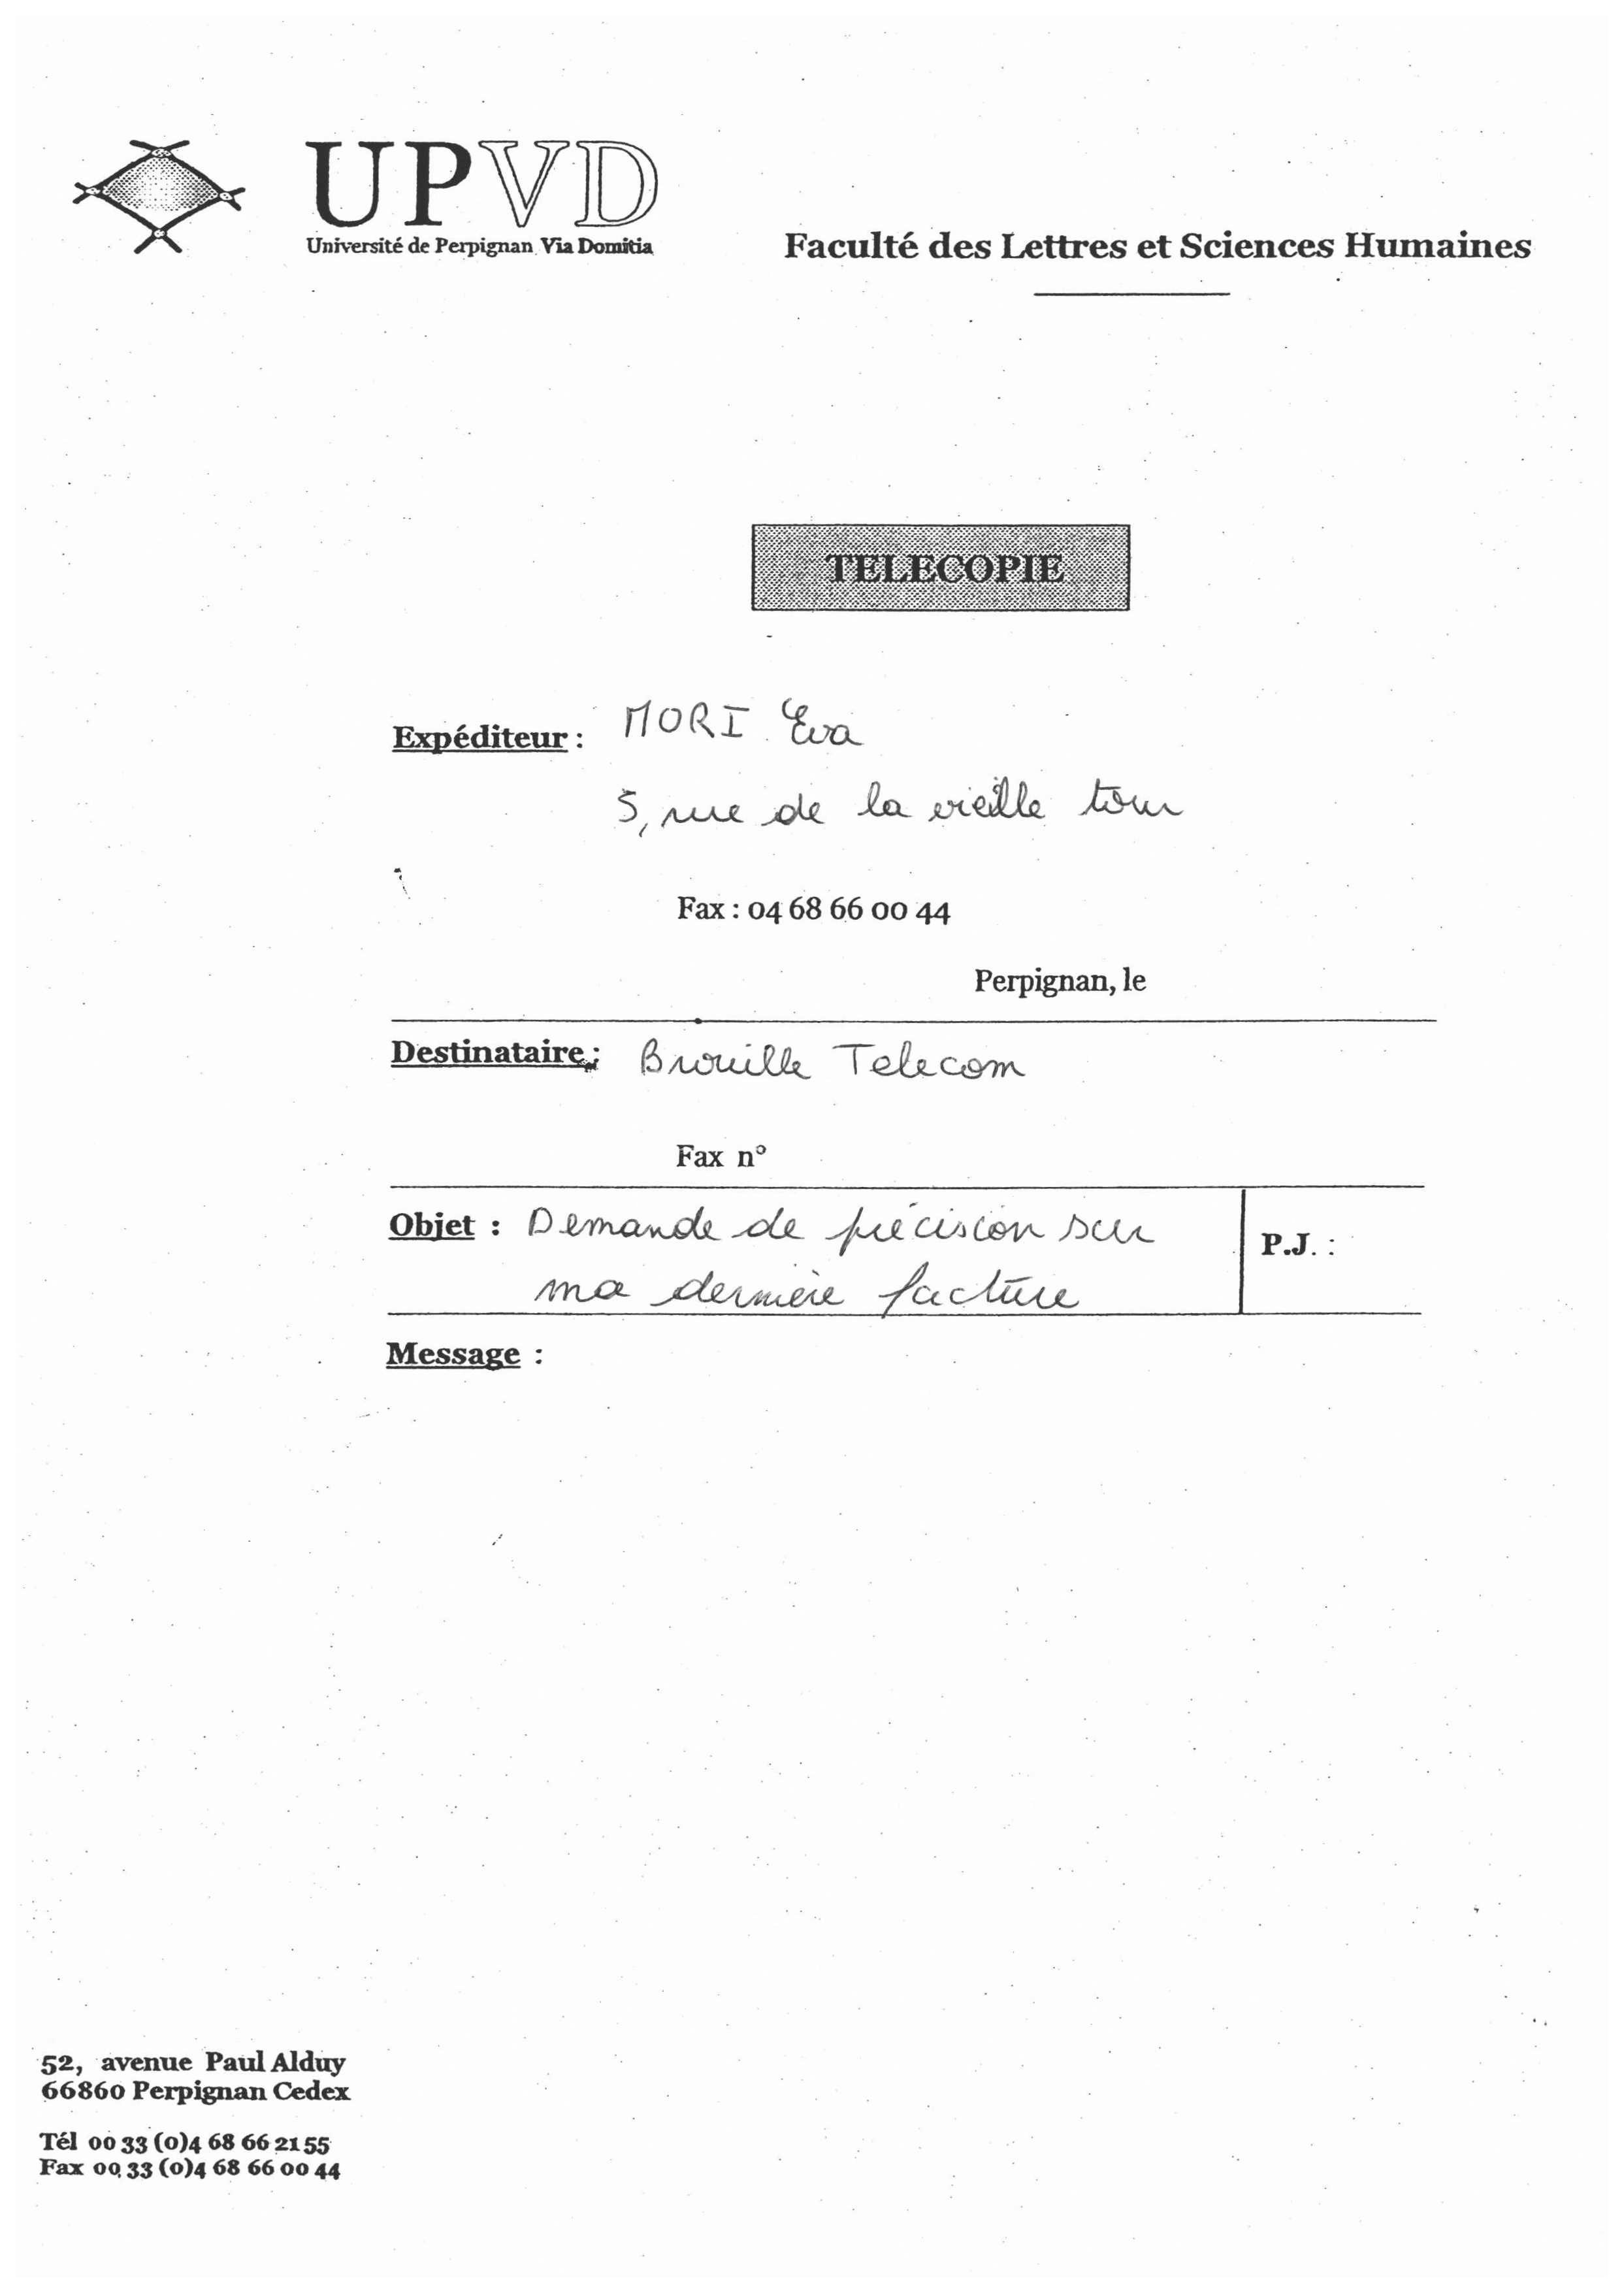 UPVD
Université de Perpignan Via Domitia
Faculté des Lettres et Sciences Humaines
TELECOPIE
Expéditeur : MORI Eva
5, rue de la vieille tour
Fax : 04 68 66 00 44
Perpignan, le
Destinataire : Brouille Telecom
Fax n°
Objet : Demande de précision sur
P.J. :
ma dernière facture
Message :
52, avenue Paul Alduy
66860 Perpignan Cedex
Tél 00 33 (0)4 68 66 21 55
Fax 00 33 (0)4 68 66 00 44